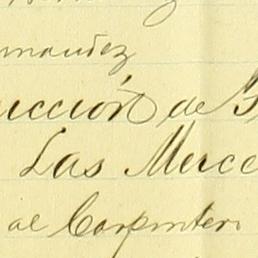 rnandez
ucción de
Las Merce
al Carpinter